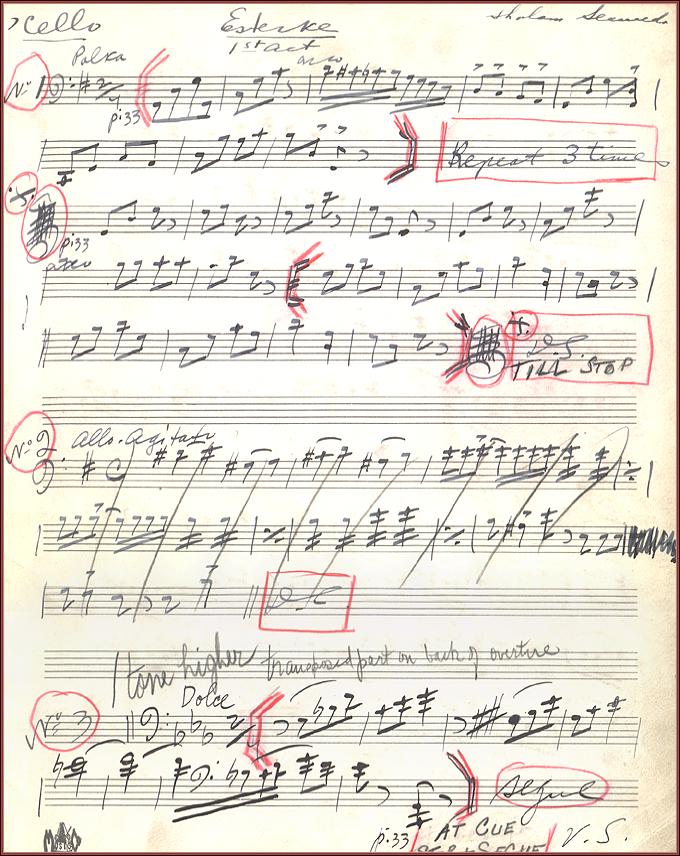 Cello
Esterke
1st act
Sholom Secunda
Polka
arco
No 1
p:33
Repeat 3 times
p:33
D.S.
TILL STOP
No 2
Allo. Agitato
D.C.
1 tone higher transposed part on back of overture
No 3
Dolce
Segue
p:33
AT CUE
V.S.